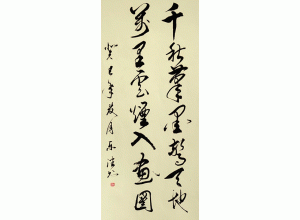 千秋筆墨驚天地
萬里雲煙入畫圖
癸巳年